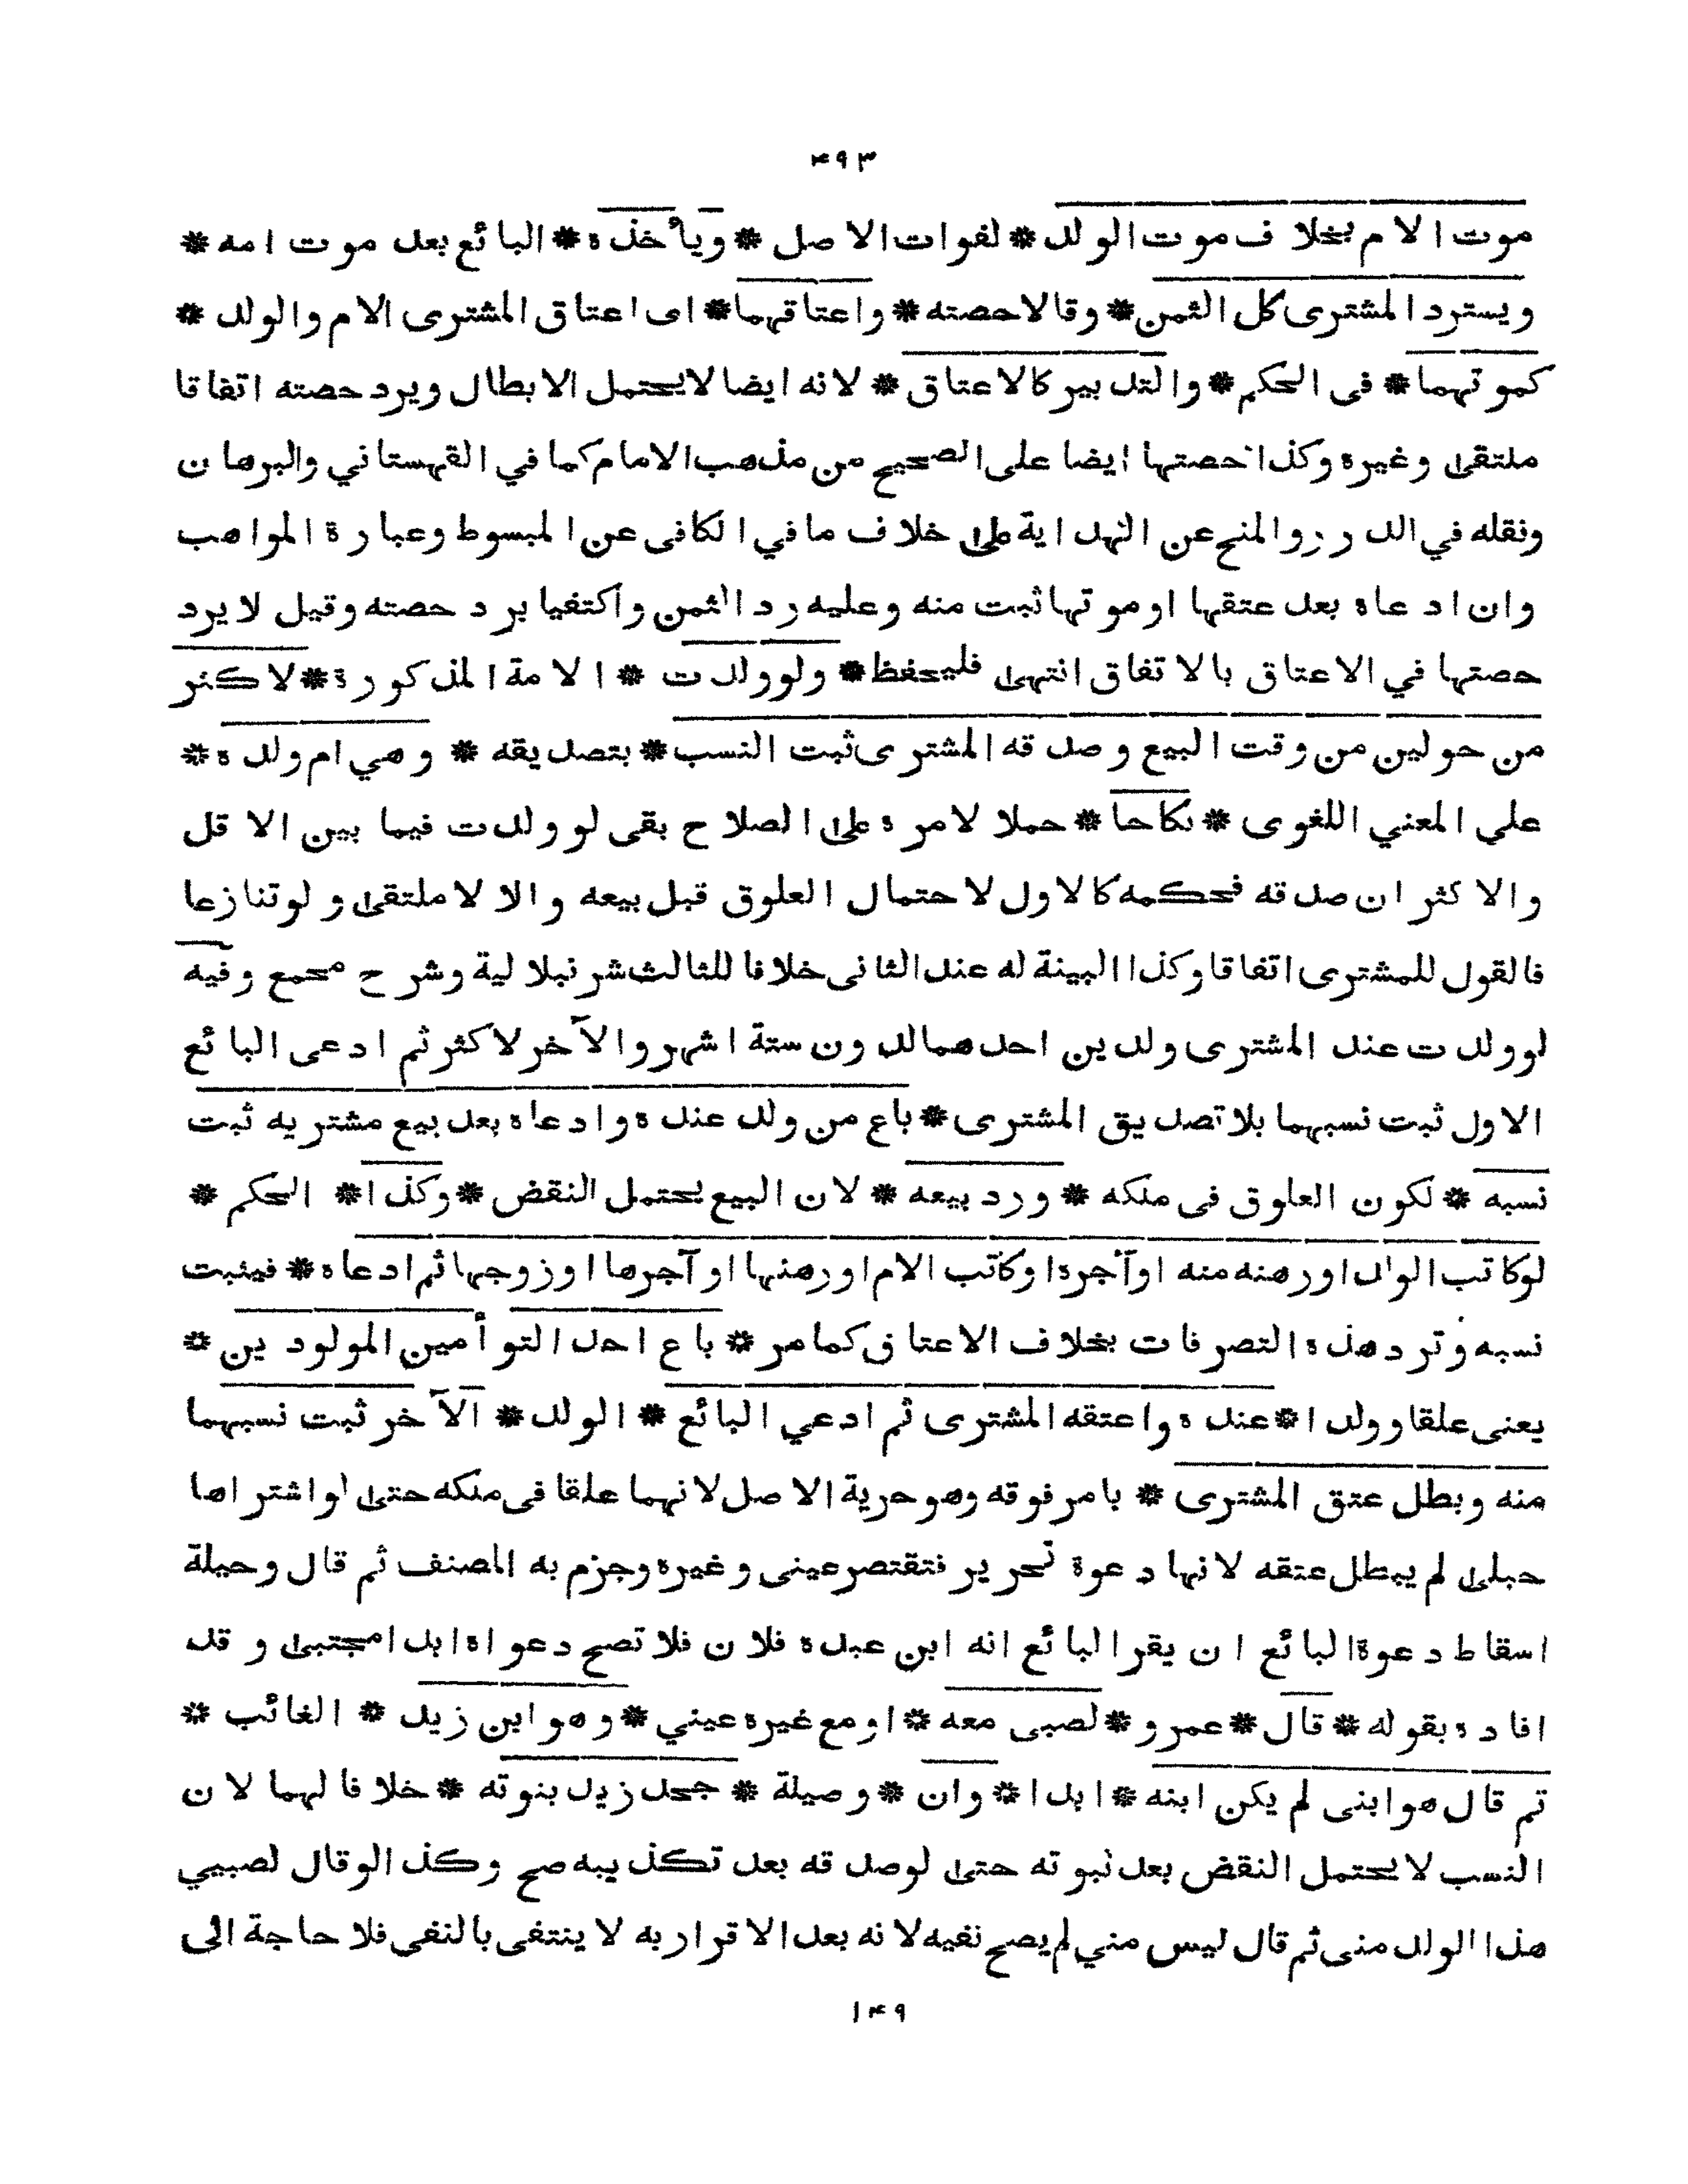 ۴۹۳
موت الام بخلاف موت الولد * لفوات الاصل * ويأخذه * البائع بعد موت امه *
ويسترد المشترى كل الثمن * وقالا حصته * واعتاقهما * اى اعتاق المشترى الام والولد *
كموتهما * فى الحكم * والتدبير كالاعتاق * لانه ايضا لا يحتمل الابطال ويرد حصته اتفاقا
ملتقى وغيره وكذا حصتها ايضا على الصحيح من مذهب الامام كما في القهستاني والبرهان
ونقله في الدرر والمنح عن الهداية على خلاف ما في الكافى عن المبسوط وعبارة المواهب
وان ادعاه بعد عتقها او موتها ثبت منه وعليه رد الثمن واكتفيا برد حصته وقيل لا يرد
حصتها في الاعتاق بالاتفاق انتهى فليحفظ * ولو ولدت * الامة المذكورة * لاكثر
من حولين من وقت البيع وصدقه المشترى ثبت النسب * بتصديقه * وهي ام ولده *
علي المعني اللغوى * نكاحا * حملا لامره على الصلاح بقى لو ولدت فيما بين الاقل
والاكثر ان صدقه فحكمه كالاول لاحتمال العلوق قبل بيعه والا لا ملتقى ولو تنازعا
فالقول للمشترى اتفاقا وكذا البينة له عند الثانى خلافا للثالث شرنبلالية وشرح مجمع وفيه
لو ولدت عند المشترى ولدين احدهما لدون ستة اشهر والآخر لاكثر ثم ادعى البائع
الاول ثبت نسبهما بلا تصديق المشترى * باع من ولد عنده وادعاه بعد بيع مشتريه ثبت
نسبه * لكون العلوق فى ملكه * ورد بيعه * لان البيع يحتمل النقض * وكذا * الحكم *
لو كاتب الولد او رهنه منه او آجره او كاتب الام او رهنها او آجرها او زوجها ثم ادعاه * فيثبت
نسبه وترد هذه التصرفات بخلاف الاعتاق كما مر * باع احد التوأمين المولودين *
يعنى علقا وولدا * عنده واعتقه المشترى ثم ادعي البائع * الولد * الآخر ثبت نسبهما
منه وبطل عتق المشترى * بامر فوقه وهو حرية الاصل لانهما علقا فى ملكه حتى لو اشتراها
حبلى لم يبطل عتقه لانها دعوة تحرير فتقتصر عينى وغيره وجزم به المصنف ثم قال وحيلة
اسقاط دعوة البائع ان يقر البائع انه ابن عبده فلان فلا تصح دعواه ابدا مجتبى وقد
افاده بقوله * قال * عمرو * لصبى معه * او مع غيره عيني * وهو ابن زيد * الغائب *
ثم قال هو ابنى لم يكن ابنه * ابدا * وان * وصيلة * جحد زيد بنوته * خلافا لهما لان
النسب لا يحتمل النقض بعد ثبوته حتى لو صدقه بعد تكذيبه صح وكذا لو قال لصبيي
هذا الولد منى ثم قال ليس مني لم يصح نفيه لانه بعد الاقرار به لا ينتفى بالنفى فلا حاجة الى
۱۴۹